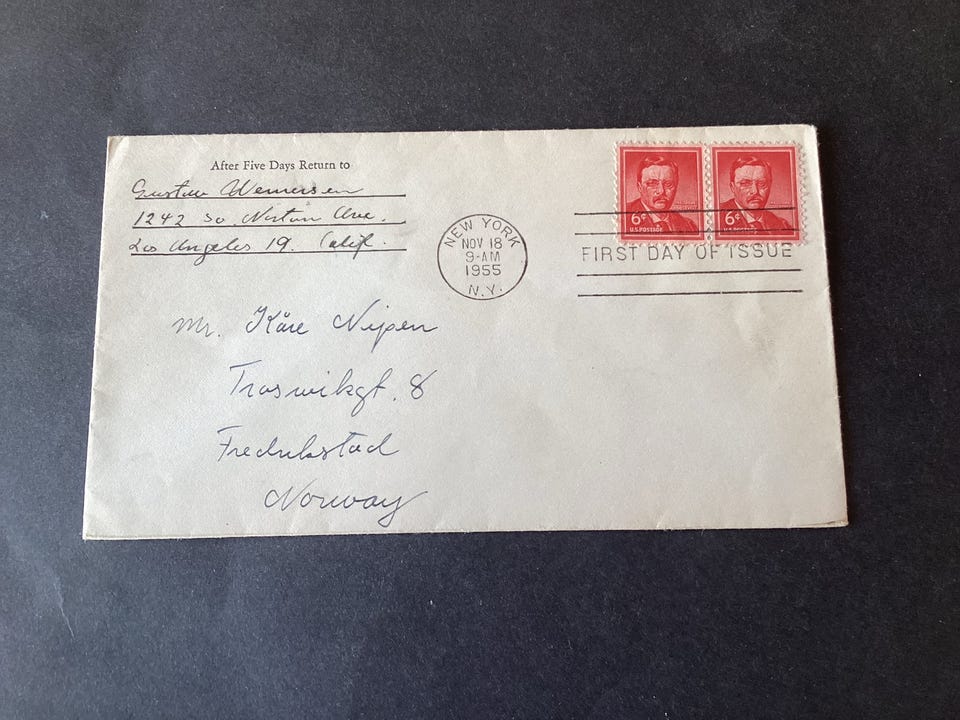 After Five Days Return to
Gustav Wemersen
1242 So. Norton Ave.
Los Angeles 19. Calif.
NEW YORK
NOV 18
9-AM
1955
N.Y.
6¢
U.S. POSTAGE
6¢
U.S. POSTAGE
FIRST DAY OF ISSUE
Mr. Kåre Nipen
Traswikgt. 8
Fredrikstad
Norway